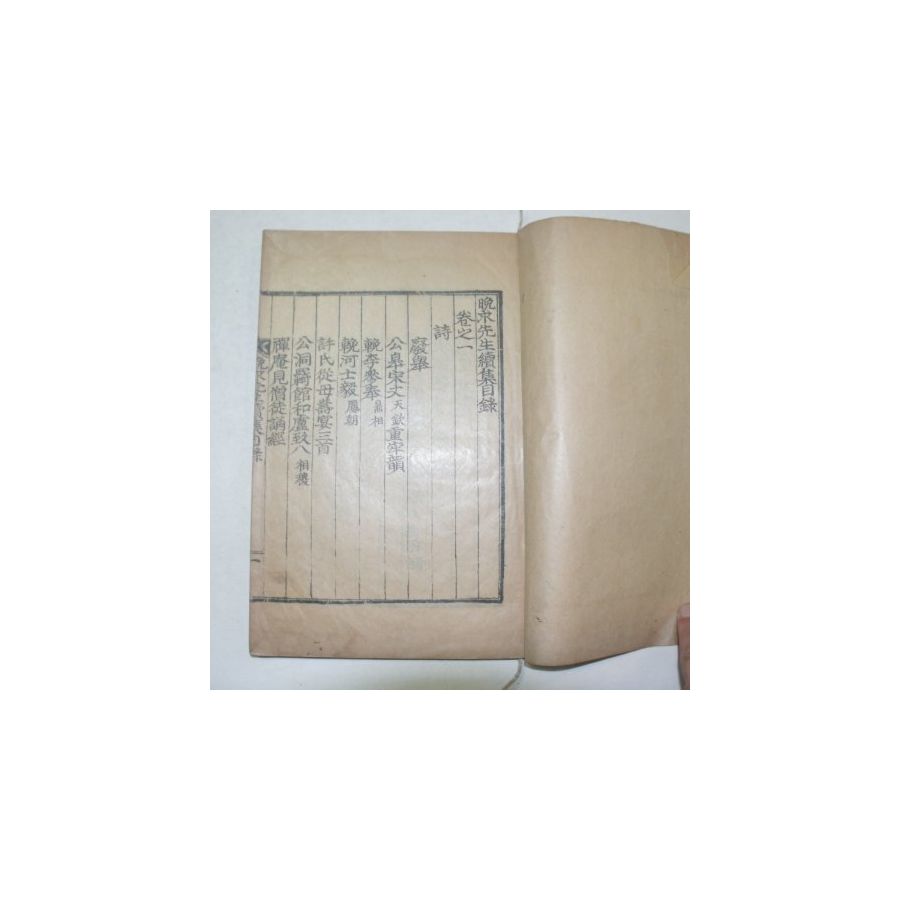 晩求先生續集目錄
卷之一
詩
廢舉
公皐宋丈天欽重牢韻
輓李參奉鼎相
輓河士毅鳳朝
許氏從母壽宴三首
公洞客館和盧致八相稷
禪庵見僧徒誦經
晩求先生續集目錄 一